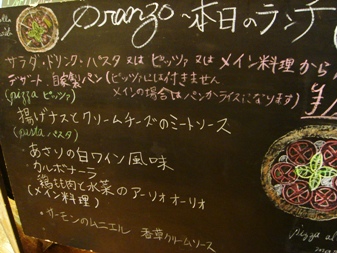 pranzo ~本日のランチ
サラダ・ドリンク・パスタ 又は ピッツァ 又は メイン料理 から
デザート・自家製パン(ピッツァには付きません
メインの場合はパンかライスになります)
(pizza ピッツァ)
揚げナスとクリームチーズのミートソース
(pasta パスタ)
・あさりの白ワイン風味
・カルボナーラ
鶏もも肉と水菜のアーリオオーリオ
(メイン料理)
・サーモンのムニエル 香草クリームソース
pizza al